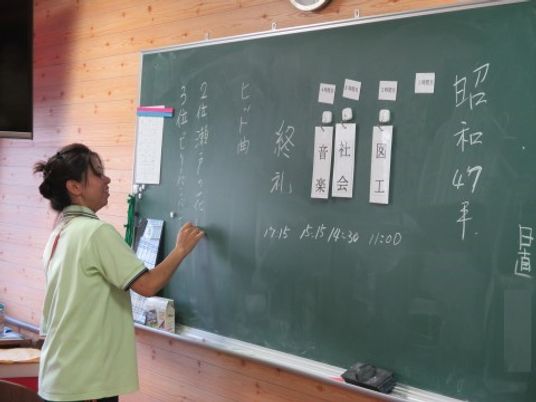 日直
昭和47年
図工
社会
音楽
11:00
14:30
15.15
17.15
終礼
ヒット曲
2位瀬戸の
3位